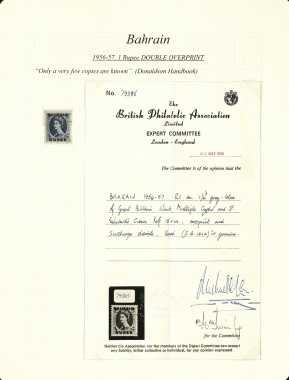 Bahrain
1956-57, 1 Rupee DOUBLE OVERPRINT
"Only a very few copies are known". (Donaldson Handbook)
No. 79385
The
British Philatelic Association
Limited
EXPERT COMMITTEE
London - England
MAY 1976
The Committee is of the opinion that the
BAHRAIN 1956-57 R1 on 1/6 grey-blue
of Great Britain Wmk Multiple Crown and
Edward's Crown overprint and
Surcharge double, used is genuine.
79385
BAHRAIN
1 RUPEE
for the Committee
Neither the Association nor the members of the Expert Committee can accept
any liability, either collective or individual, for any opinion expressed.